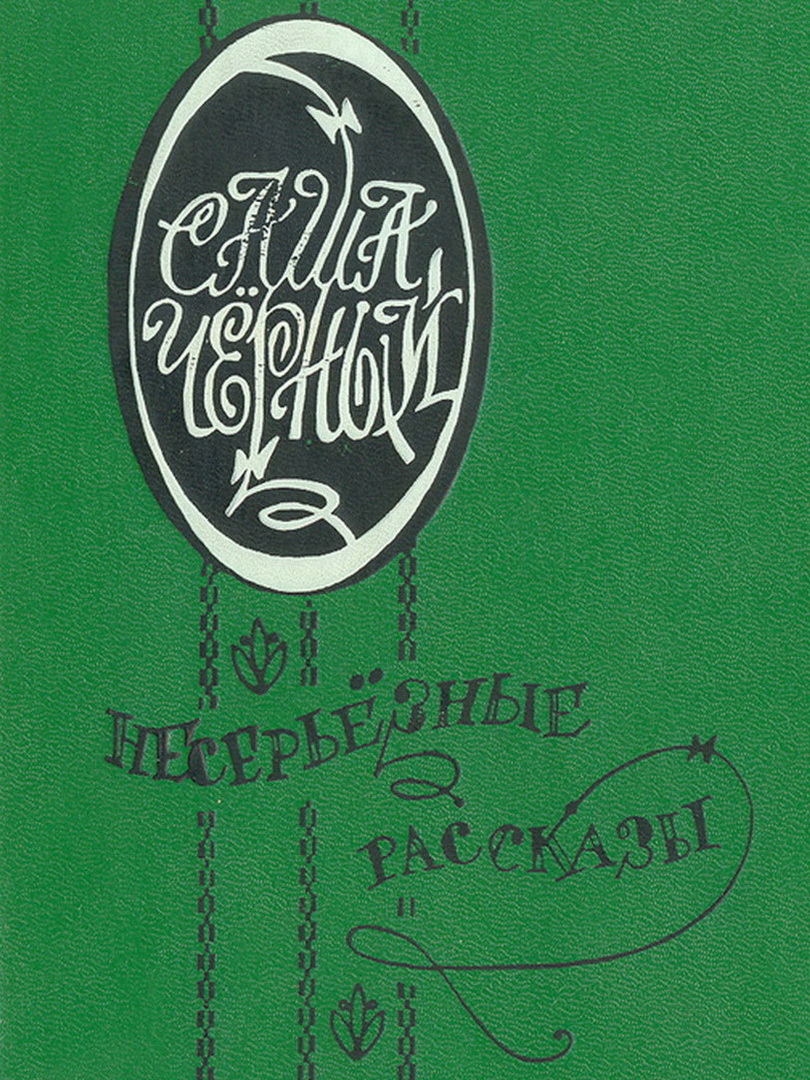 САША
ЧЁРНЫЙ
НЕСЕРЬЁЗНЫЕ
РАССКАЗЫ